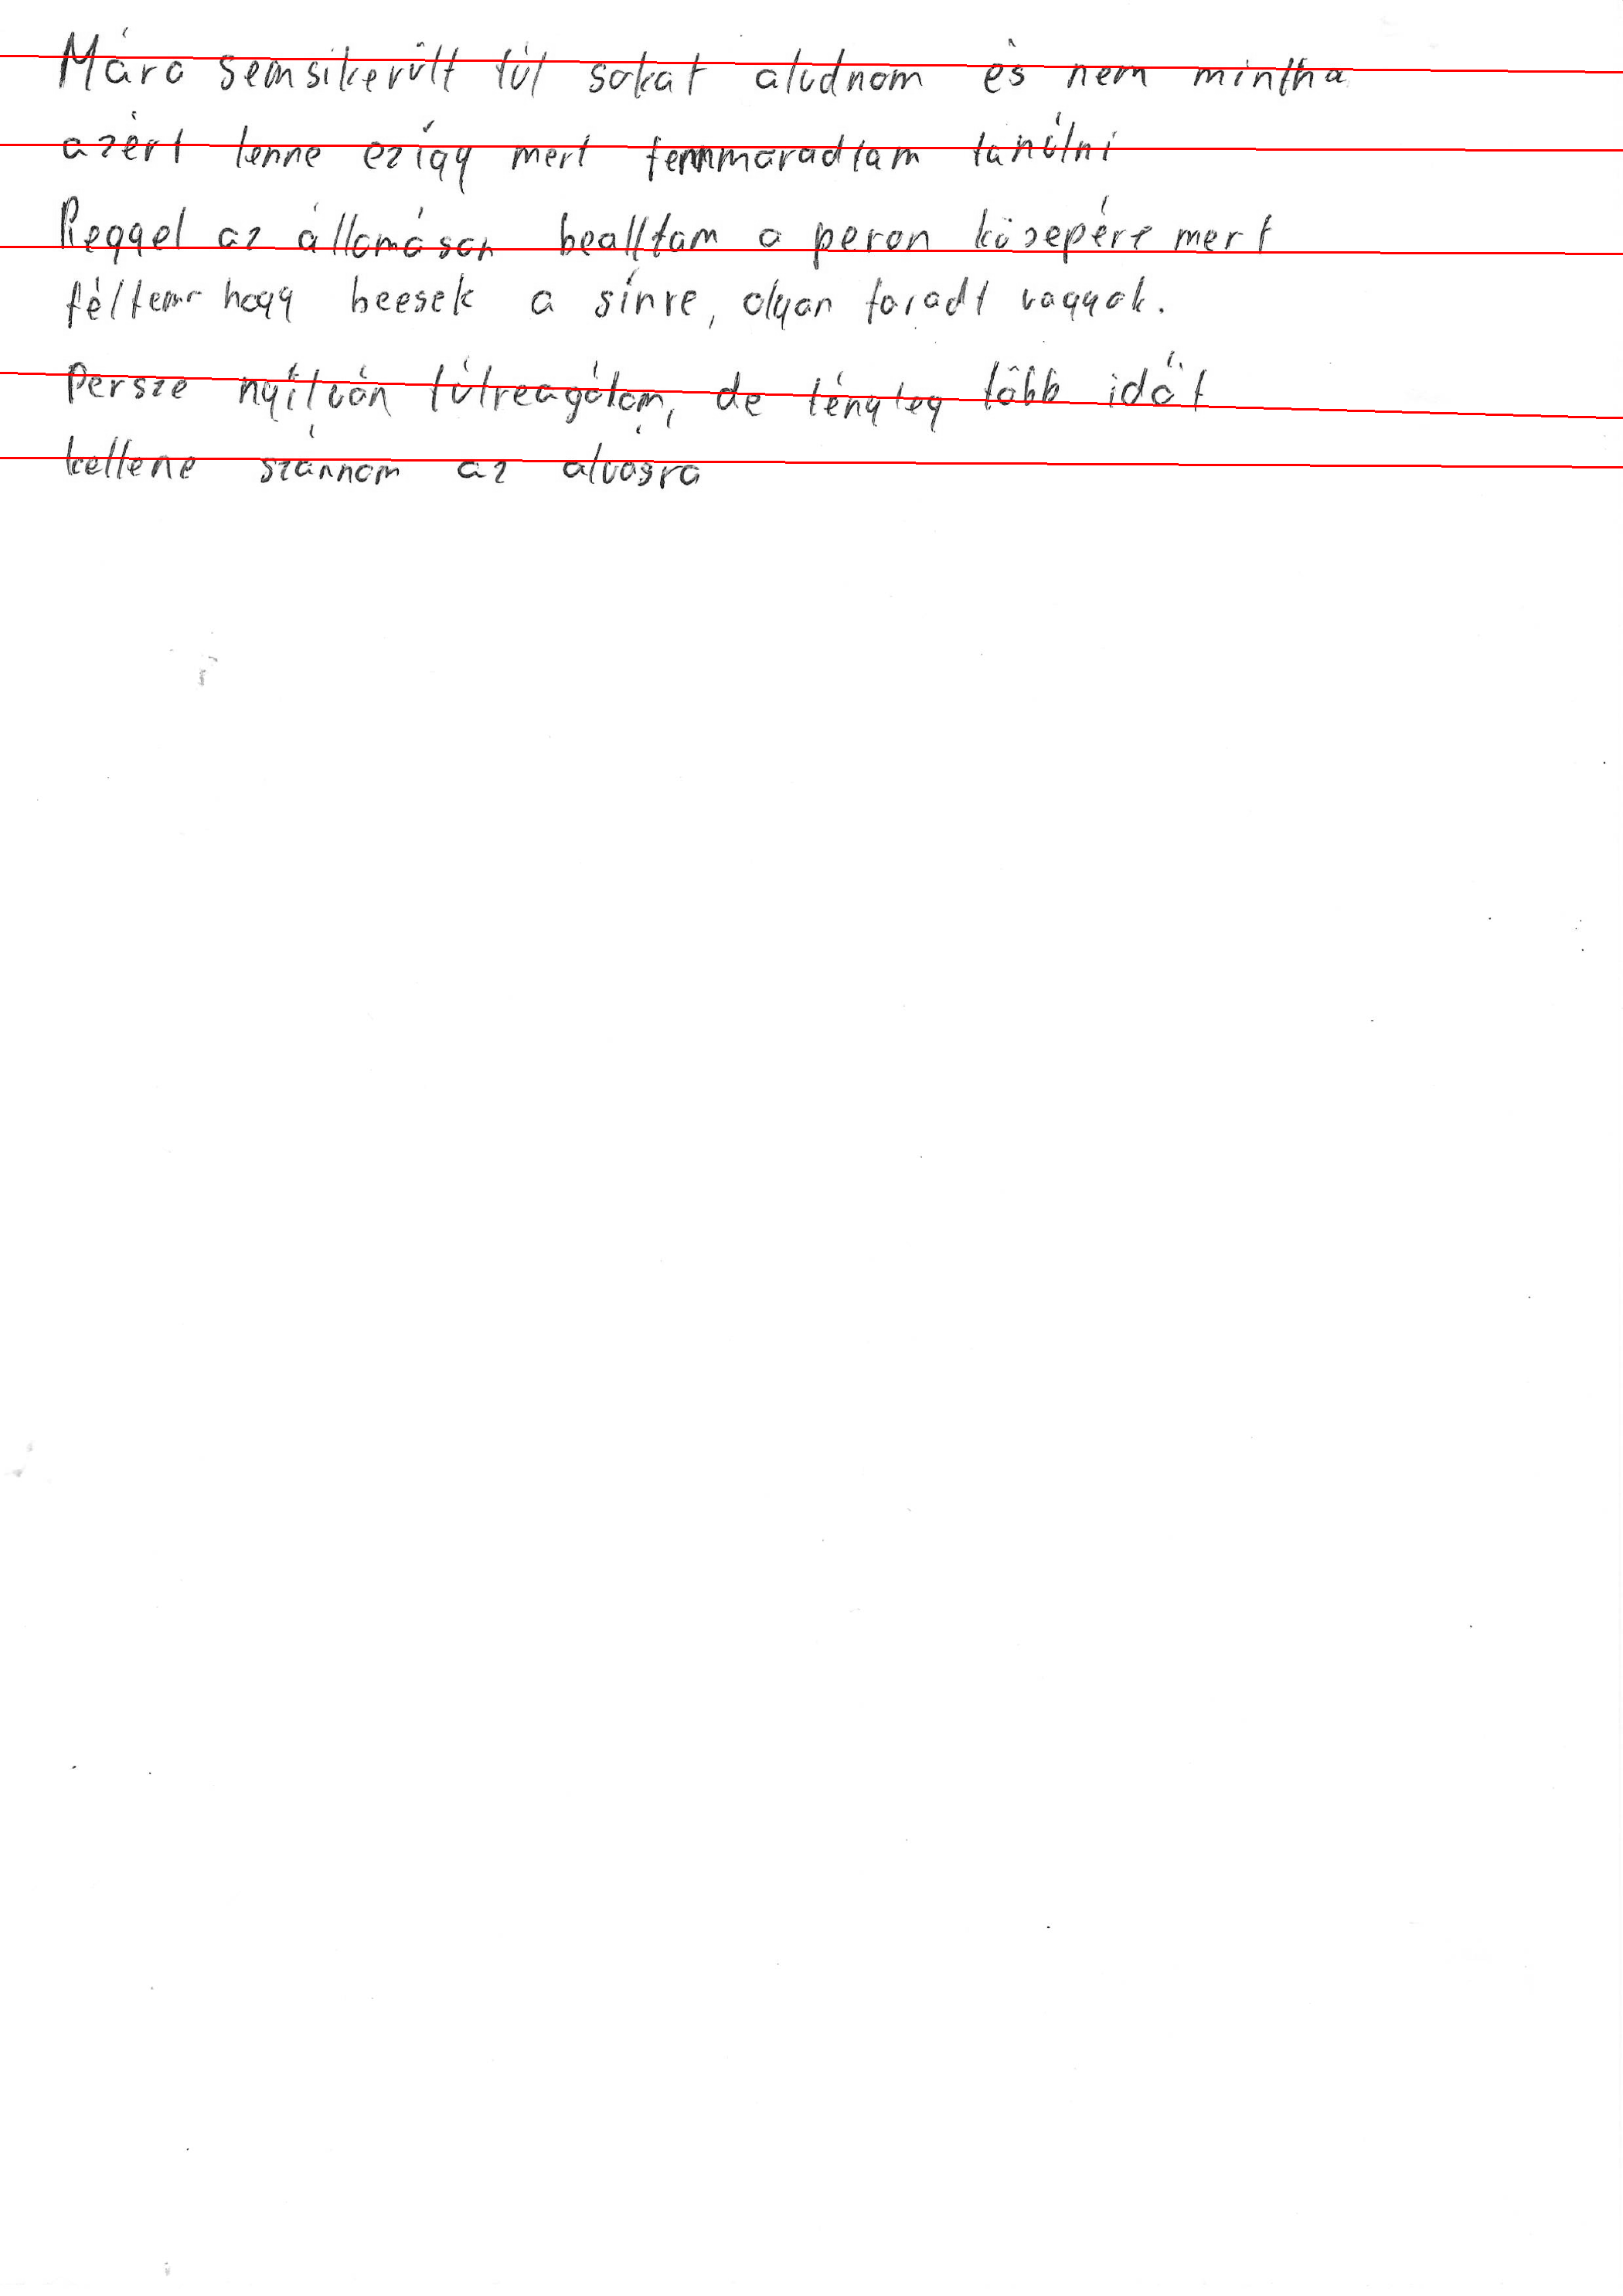 Mára semsikerült túl sokat aludnom és nem mintha
azért lenne ezígy mert fennmaradtam tanúlni
Reggel az állomáson bealltam a peron közepére mert
féltem hogy beesek a sínre, olyan faradt vagyok.
Persze nyílván túlreagálom, de tényleg több időt
kellene szánnom az alvásra